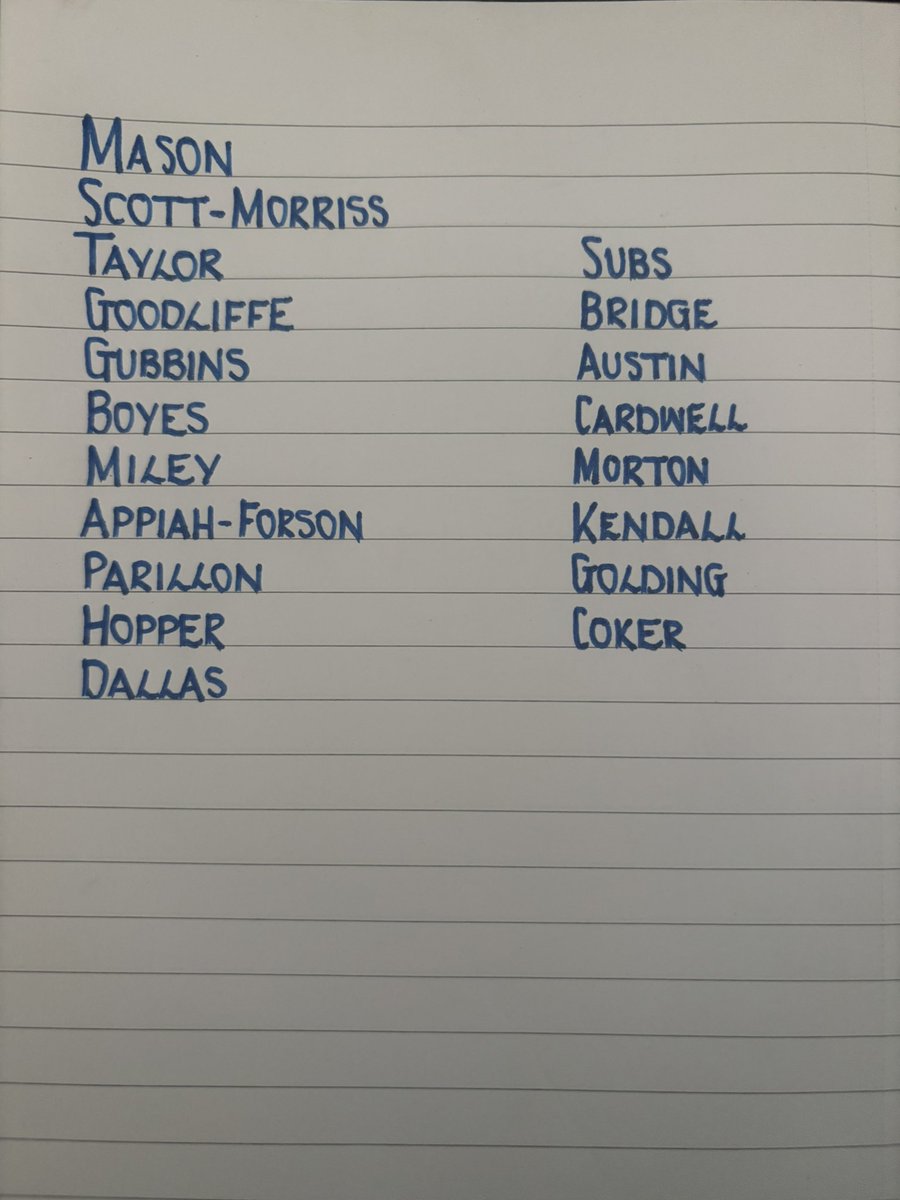 MASON
SCOTT-MORRISS
TAYLOR
GOODLIFFE
GUBBINS
BOYES
MILEY
APPIAH-FORSON
PARILLON
HOPPER
DALLAS
SUBS
BRIDGE
AUSTIN
CARDWELL
MORTON
KENDALL
GOLDING
COKER